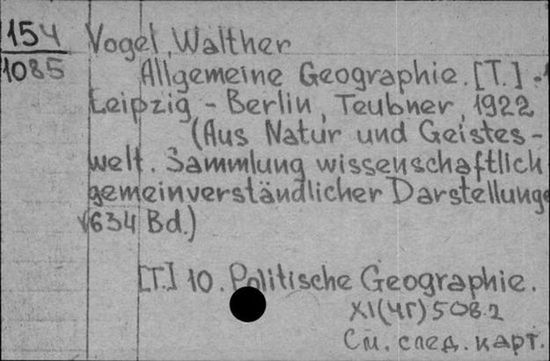 154 Vogel, Walther
1085 Allgemeine Geographie. [T.] -
Leipzig - Berlin, Teubner, 1922
(Aus Natur und Geistes-
welt. Sammlung wissenschaftlich
gemeinverständlicher Darstellunge
634 Bd.)
[T.] 10. Politische Geographie.
XI(4Г)508.2
См. след. карт.